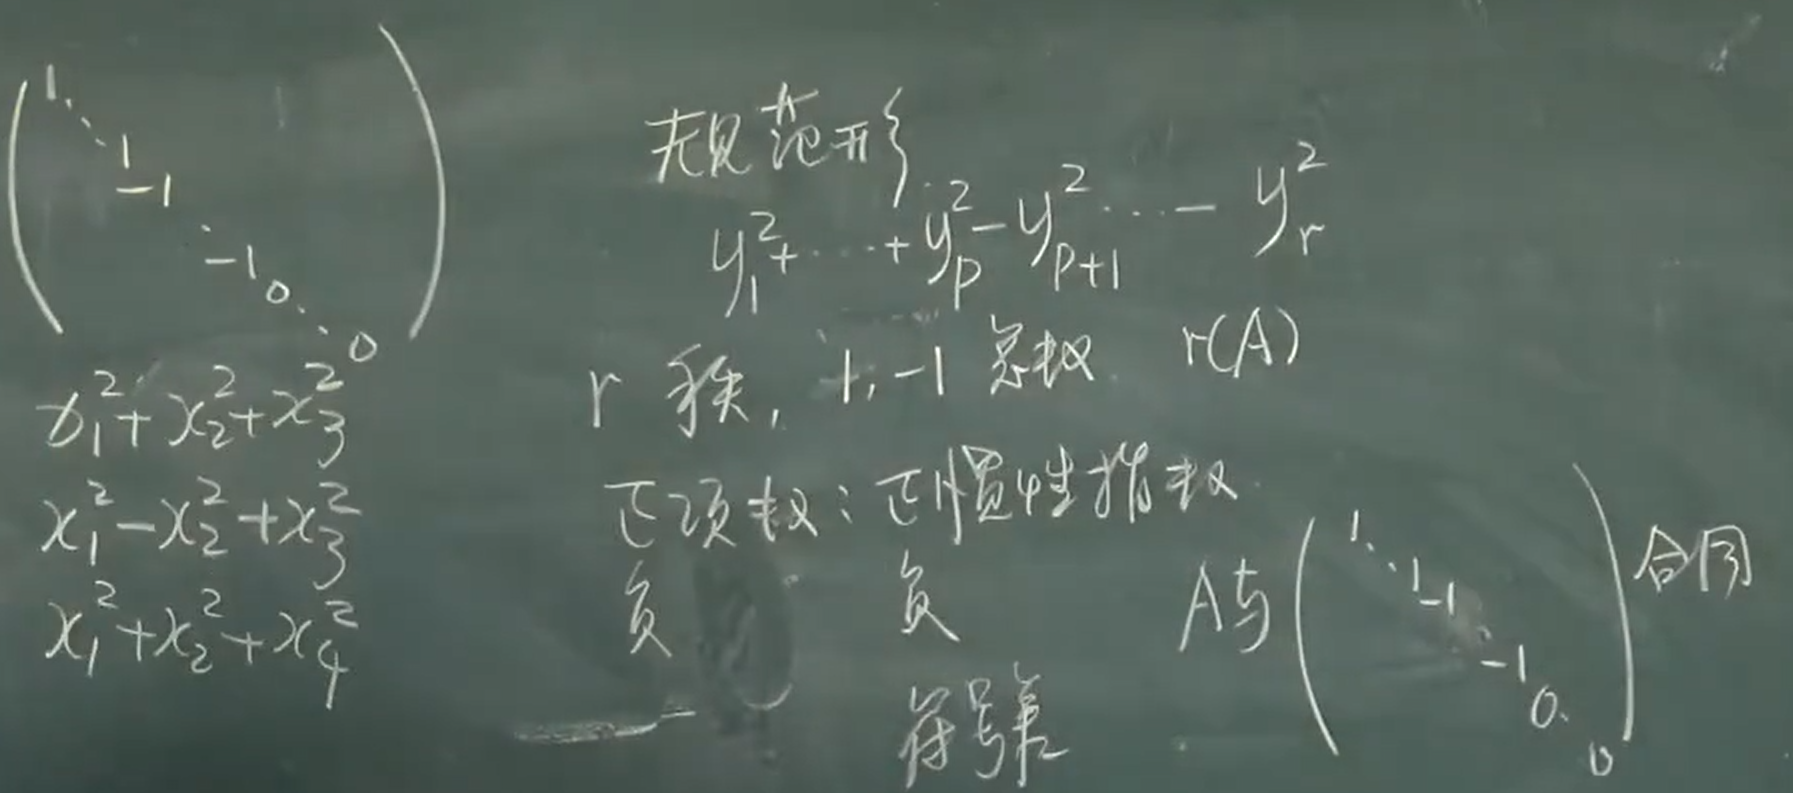 1
⋱
1
-1
⋱
-1
0
⋱
0
x₁²+x₂²+x₃²
x₁²-x₂²+x₃²
x₁²+x₂²+x₄²
规范形
y₁²+⋯+y_p²-y_{p+1}²⋯-y_r²
r 秩, 1,-1 总数 r(A)
正项数:正惯性指数
负 负
符号差
A与(1 ⋱ 1 -1 ⋱ -1 0 ⋱ 0)合同